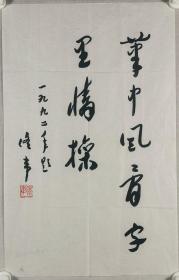 笔中风骨字
里情操
一九九二年题